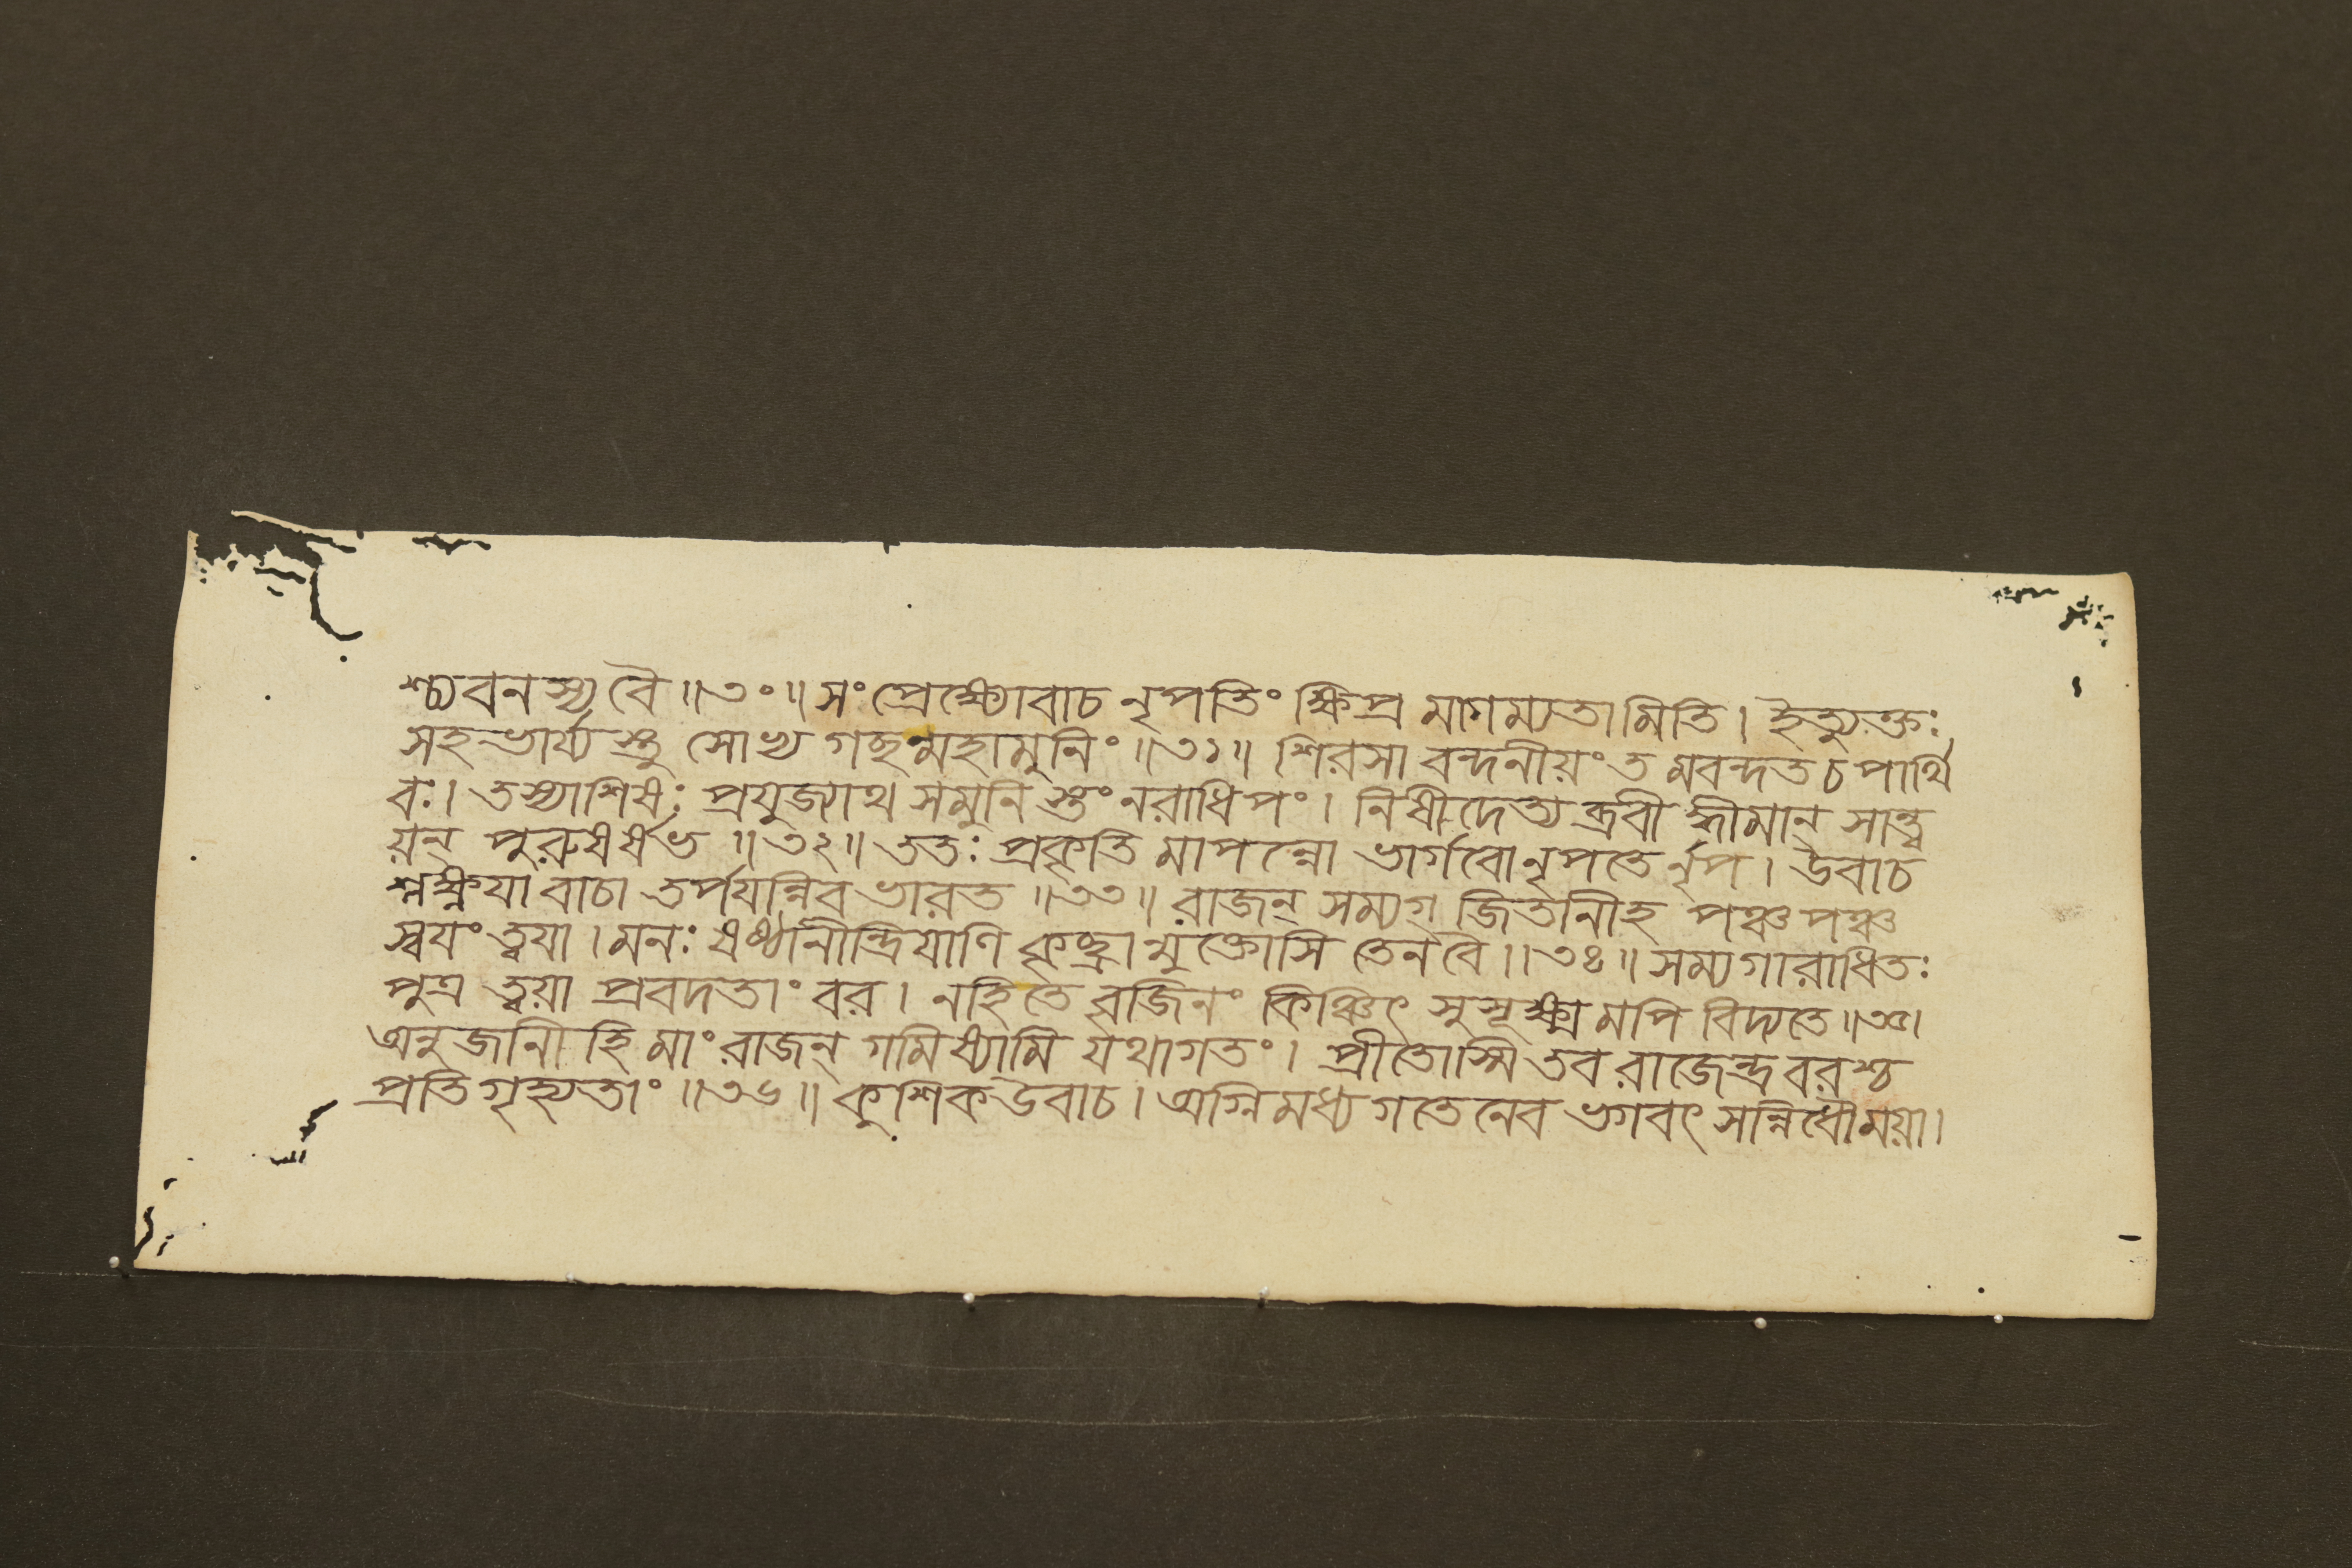 শ্চ্যবনস্য বৈ ॥৩০॥ সংপ্রেক্ষ্যোবাচ নৃপতিং ক্ষিপ্র মাগম্যতামিতি। ইত্যুক্তঃ
সহভার্য্যস্তু সোভ্য গছন্মহামুনিং ॥৩১॥ শিরসা বন্দনীয়ং ত মবন্দত চ পার্থি
বঃ। তস্যাশিষঃ প্রযুজ্যাথ সমুনি স্তং নরাধিপং। নিষীদেত্য ব্রবী দ্ধীমান্ সান্ত্ব
য়ন্ পুরুষর্ষভ ॥৩২॥ ততঃ প্রকৃতি মাপন্নো ভার্গবো নৃপতে র্নৃপ। উবাচ
শ্লক্ষ্ণয়া বাচা তর্পয়ন্নিব ভারত ॥৩৩॥ রাজন্ সম্যগ্ জিতানীহ পঞ্চ পঞ্চ
স্বয়ং ত্বয়া। মনঃ ষষ্ঠানীন্দ্রিয়াণি কৃচ্ছ্রা ন্মুক্তোসি তেন বৈ ॥৩৪॥ সম্যগারাধিতঃ
পুত্র ত্বয়া প্রবদতাং বর। ন হি তে বৃজিনং কিঞ্চিৎ সুসূক্ষ্ম মপি বিদ্যতে ॥৩৫।
অনুজানী হি মাং রাজন্ গমিষ্যামি যথাগতং। প্রীতোস্মি তব রাজেন্দ্র বরশ্চ
প্রতিগৃহ্যতাং ॥৩৬॥ কুশিক উবাচ। অগ্নিমধ্য গতেনেব ভগবৎ সন্নিধৌ ময়া।